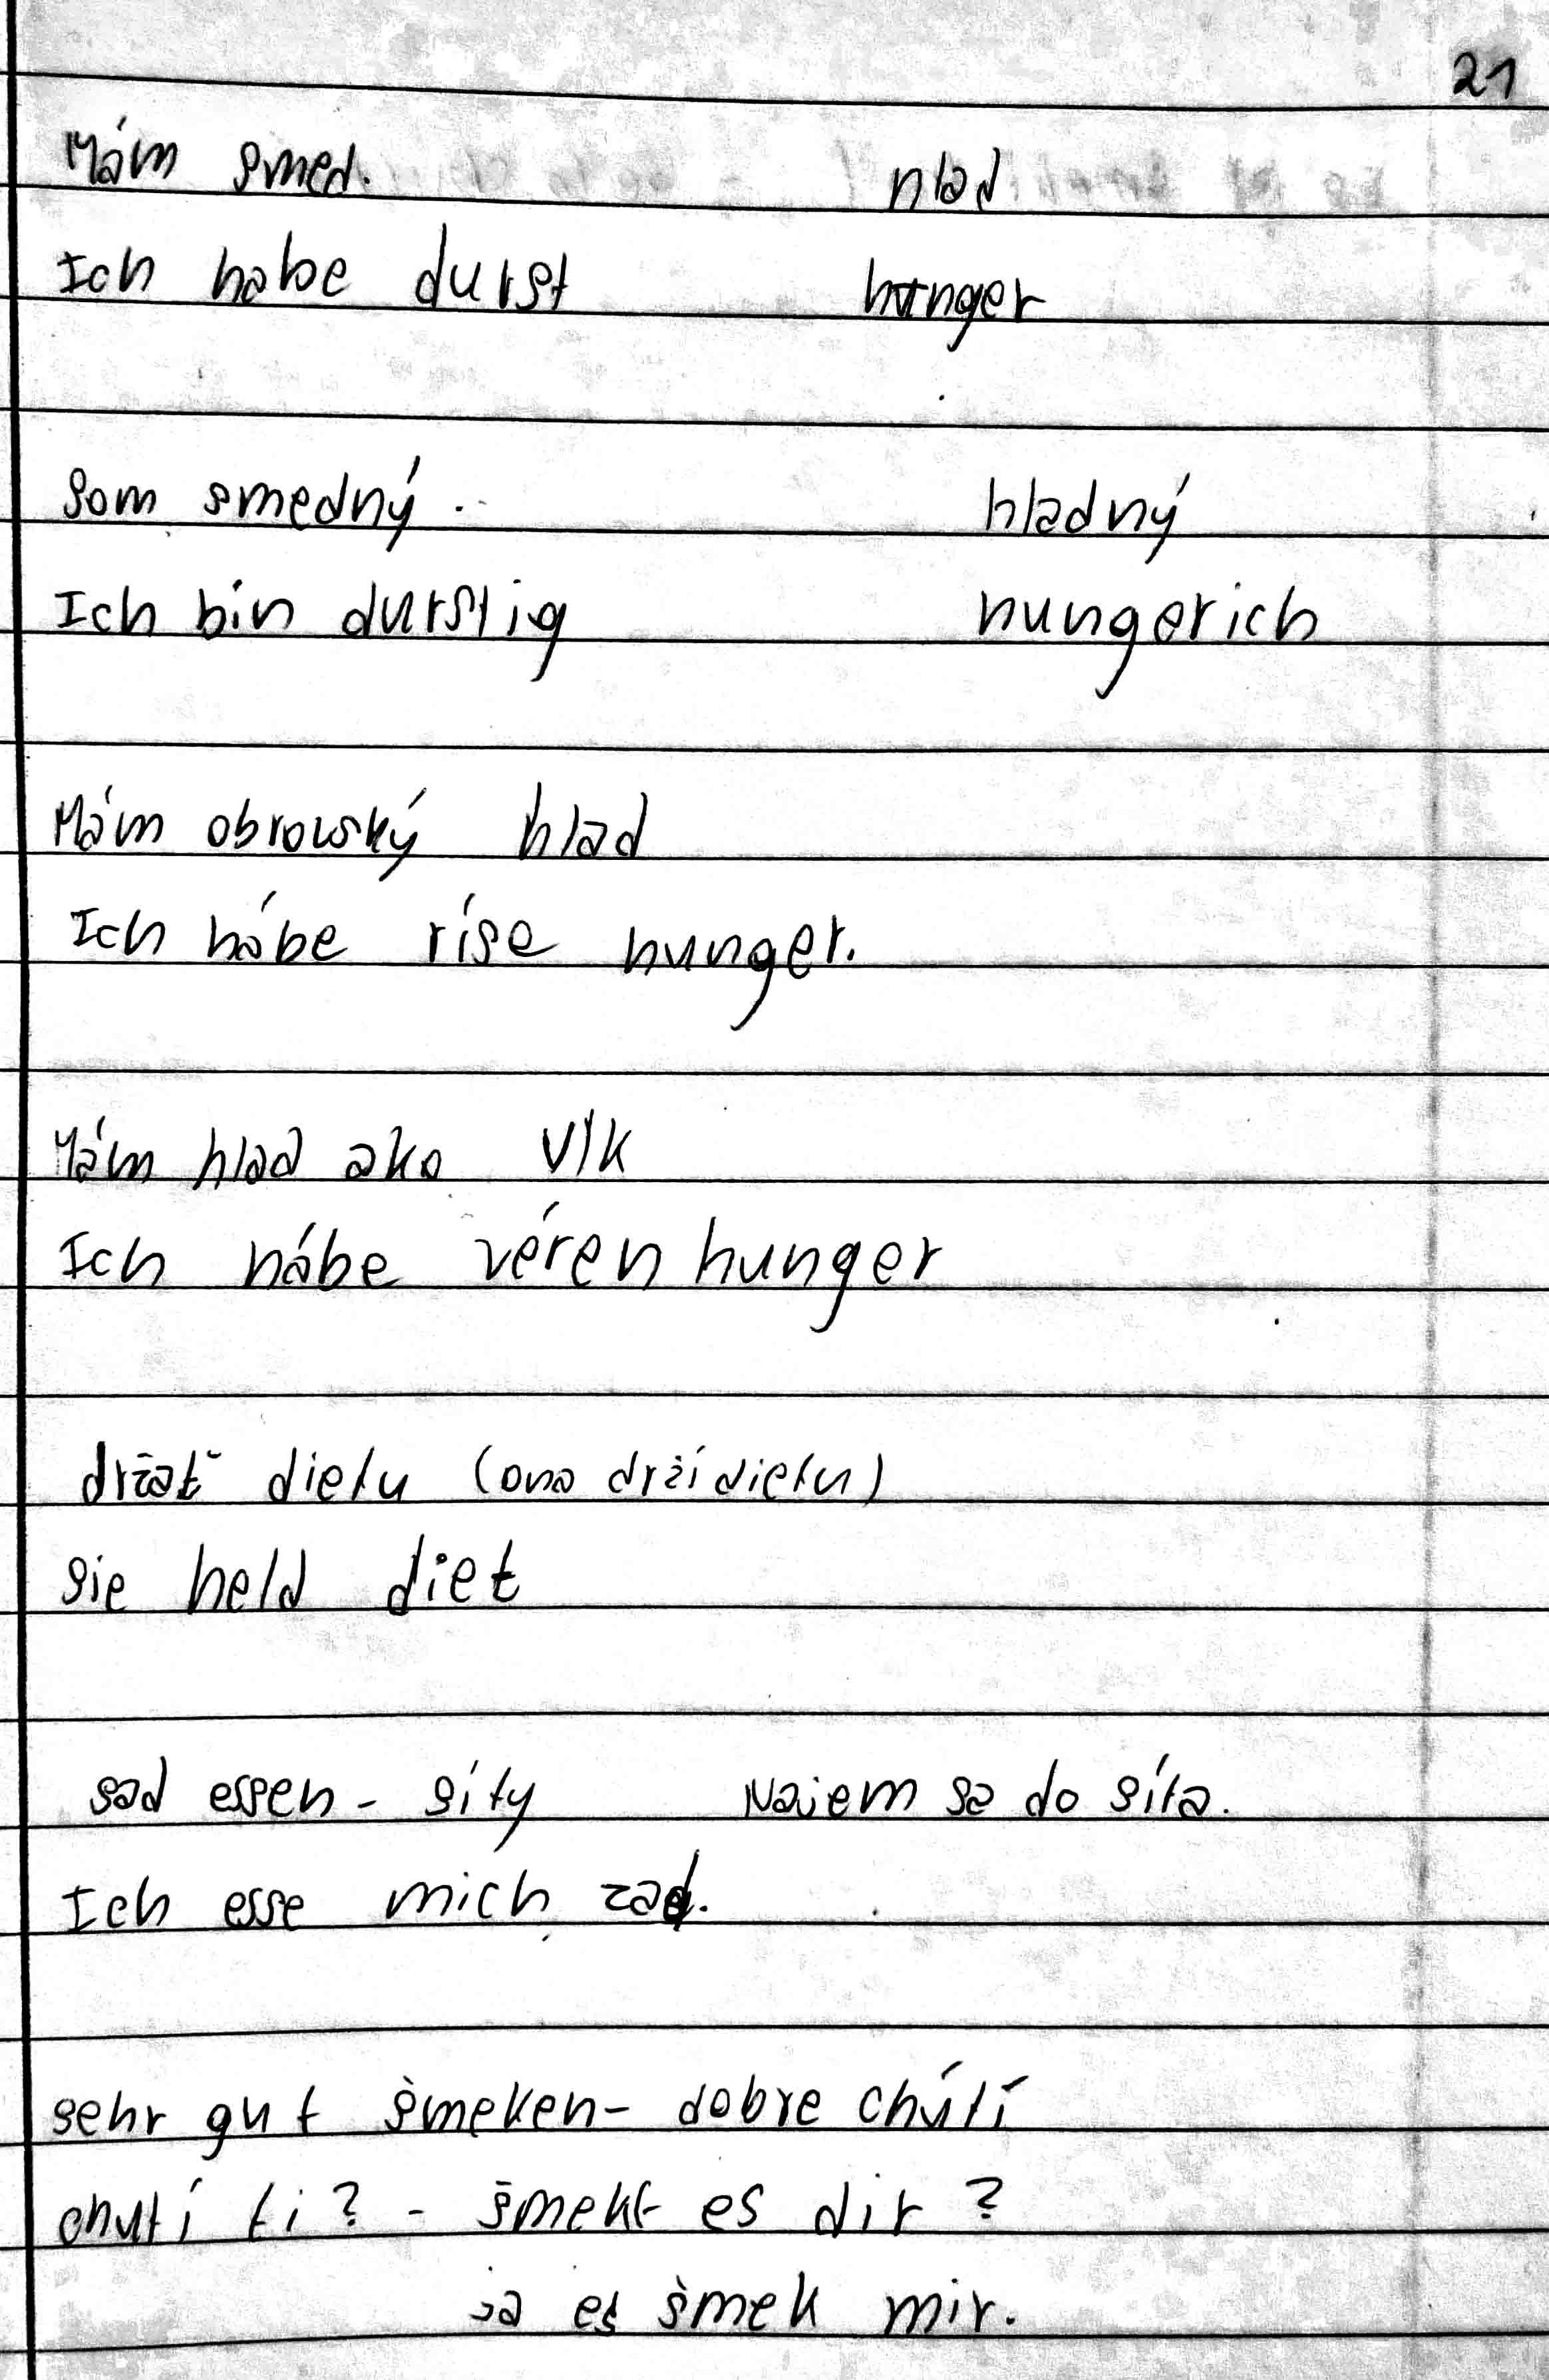 21
Mám smed. hlad
Ich habe durst hunger
Som smedný. hladný
Ich bin durstig hungerich
Mám obrovský hlad
Ich hábe ríse hunger.
Mám hlad ako vlk
Ich hábe véren hunger
držať dietu (ona drží dietu)
sie held diet
sad essen - síty Najem sa do síta.
Ich esse mich zad.
sehr gut šmeken - dobre chútí
chutí ti? - šmekt es dir?
ja es šmek mir.